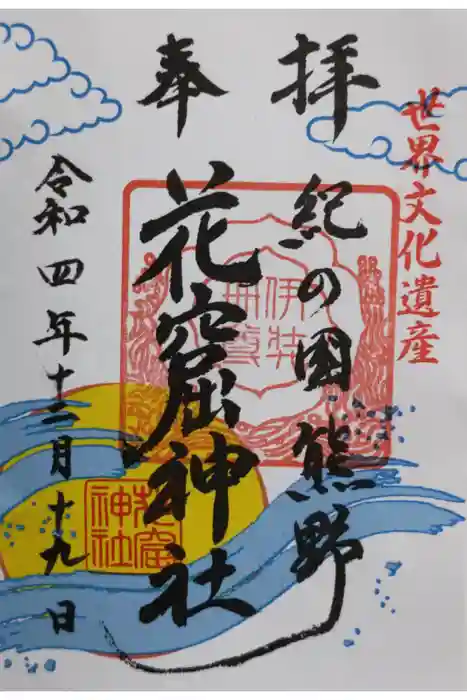 世界文化遺産
奉拝
紀の国熊野
花窟神社
令和四年十二月十九日
伊弉冊尊
花窟神社